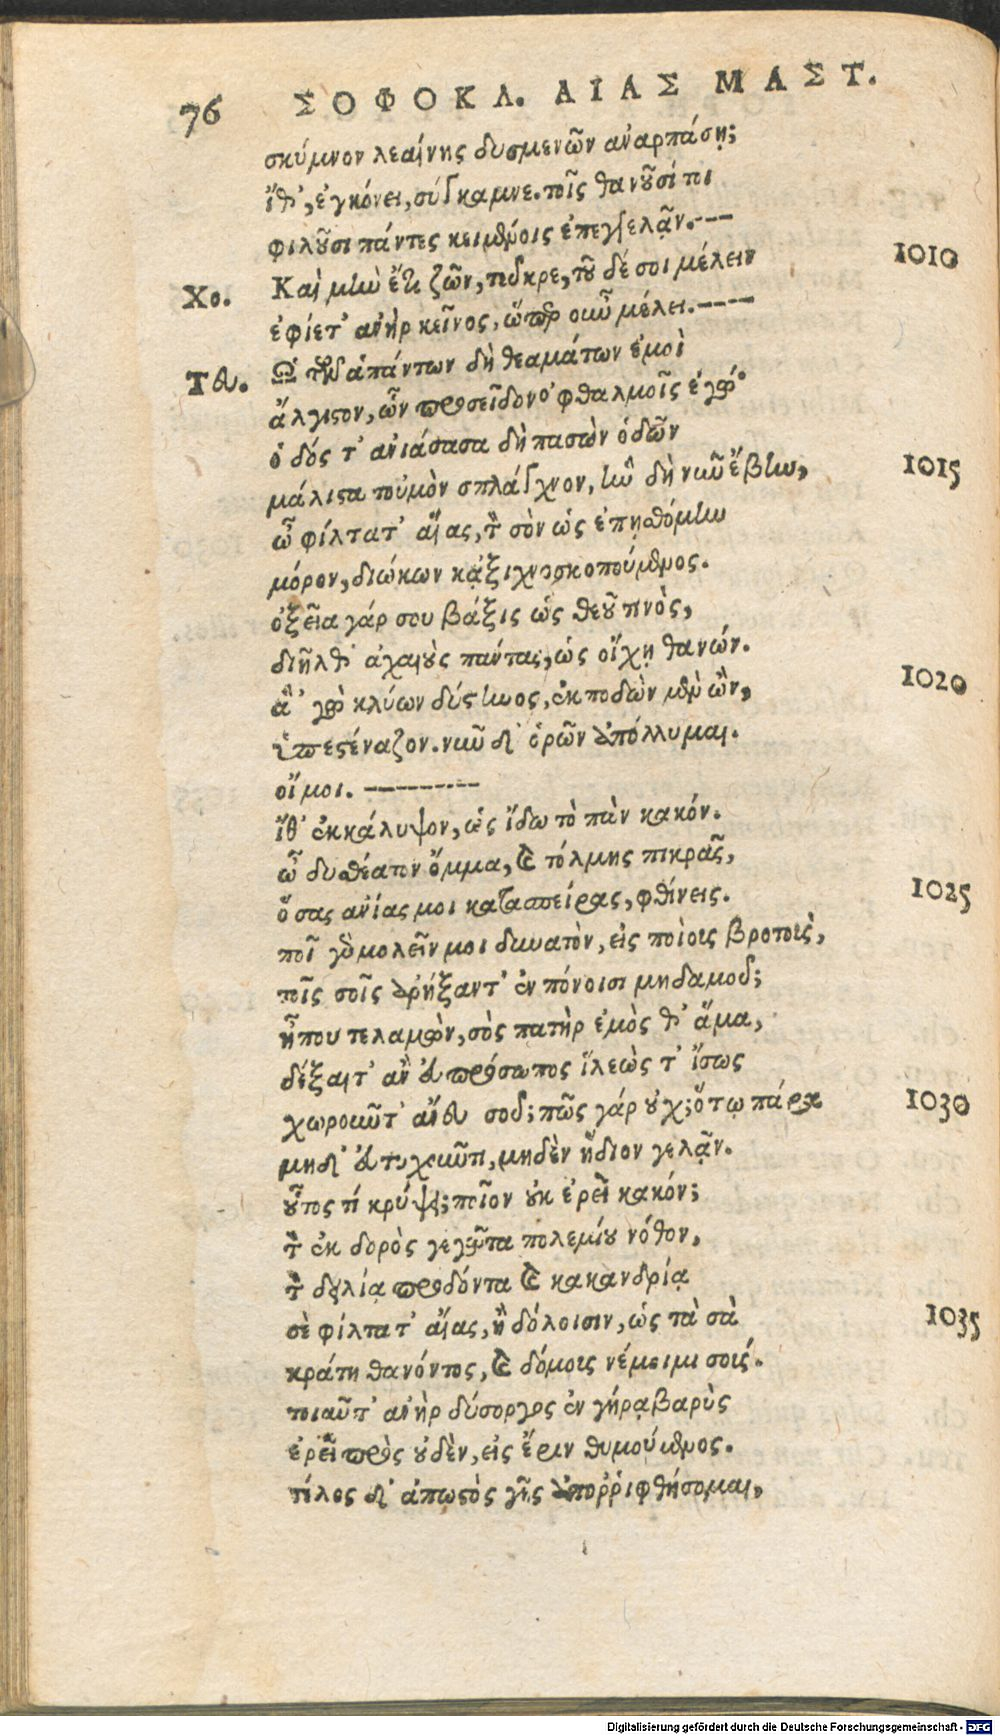 76 ΣΟΦΟΚΛ. ΑΙΑΣ ΜΑΣΤ.
σκύμνον λεαίνης δυσμενῶν ἀναρπάσῃ;
ἴθ', ἐγκόνει, σύγκαμνε. τοῖς θανοῦσί τοι
φιλοῦσι πάντες κειμένοις ἐπεγγελᾶν.---
Χο. Καὶ μὴν ἔτι ζῶν, τεῦκρε, τοῦ δέ σοι μέλειν 1010
ἐφίετ' ἀνὴρ κεῖνος, ὥσπερ οὖν μέλει.----
Τευ. Ὦ τῶν ἁπάντων δὴ θεαμάτων ἐμοὶ
ἄλγιστον, ὧν προσεῖδον ὀφθαλμοῖς ἐγώ·
ὁδός τ' ἀνιάσασα δὴ πασῶν ὁδῶν
μάλιστα τοὐμὸν σπλάγχνον, ἣν δὴ νῦν ἔβην, 1015
ὦ φίλτατ' αἴας, τὸν σὸν ὡς ἐπῃσθόμην
μόρον, διώκων κᾀξιχνοσκοπούμενος.
ὀξεῖα γάρ σου βάξις ὡς θεοῦ τινὸς,
διῆλθ' ἀχαιοὺς πάντας, ὡς οἴχῃ θανών.
ἃ 'γὼ κλύων δύστηνος, ἐκποδὼν μὲν ὢν, 1020
ὑπεστέναζον. νῦν δ' ὁρῶν ἀπόλλυμαι.
οἴμοι. ---------
ἴθ' ἐκκάλυψον, ὡς ἴδω τὸ πᾶν κακόν.
ὦ δυσθέατον ὄμμα, καὶ τόλμης πικρᾶς,
ὅσας ἀνίας μοι κατασπείρας, φθίνεις. 1025
ποῖ γὰρ μολεῖν μοι δυνατὸν, εἰς ποίοις βροτοὶς,
τοῖς σοῖς ἀρήξαντ' ἐν πόνοισι μηδαμοῦ;
ἦ που τελαμὼν, σὸς πατὴρ ἐμὸς θ' ἅμα,
δέξαιτ' ἂν εὐπρόσωπος ἵλεώς τ' ἴσως
χωροῦντ' ἄνευ σοῦ; πῶς γάρ οὐχ; ὅτῳ πάρα 1030
μηδ' εὐτυχοῦντι, μηδὲν ἥδιον γελᾶν.
οὗτος τί κρύψει; ποῖον οὐκ ἐρεῖ κακόν;
τὸν ἐκ δορὸς γεγῶτα πολεμίου νόθον,
τὸν δειλίᾳ προδόντα καὶ κακανδρίᾳ
σὲ φίλτατ' αἴας, ἢ δόλοισιν, ὡς τὰ σὰ 1035
κράτη θανόντος, καὶ δόμοις νέμοιμι σούς.
τοιαῦτ' ἀνὴρ δύσοργος ἐν γήρᾳ βαρὺς
ἐρεῖ πρὸς οὐδὲν, εἰς ἔριν θυμούμενος.
τέλος δ' ἀπωστὸς γῆς ἀπορῥιφθήσομαι,
Digitalisierung gefördert durch die Deutsche Forschungsgemeinschaft - DFG